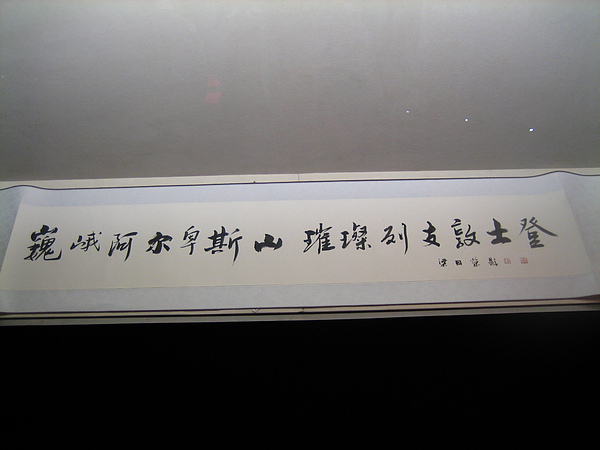 巍峨阿尔卑斯山 璀璨列支敦士登